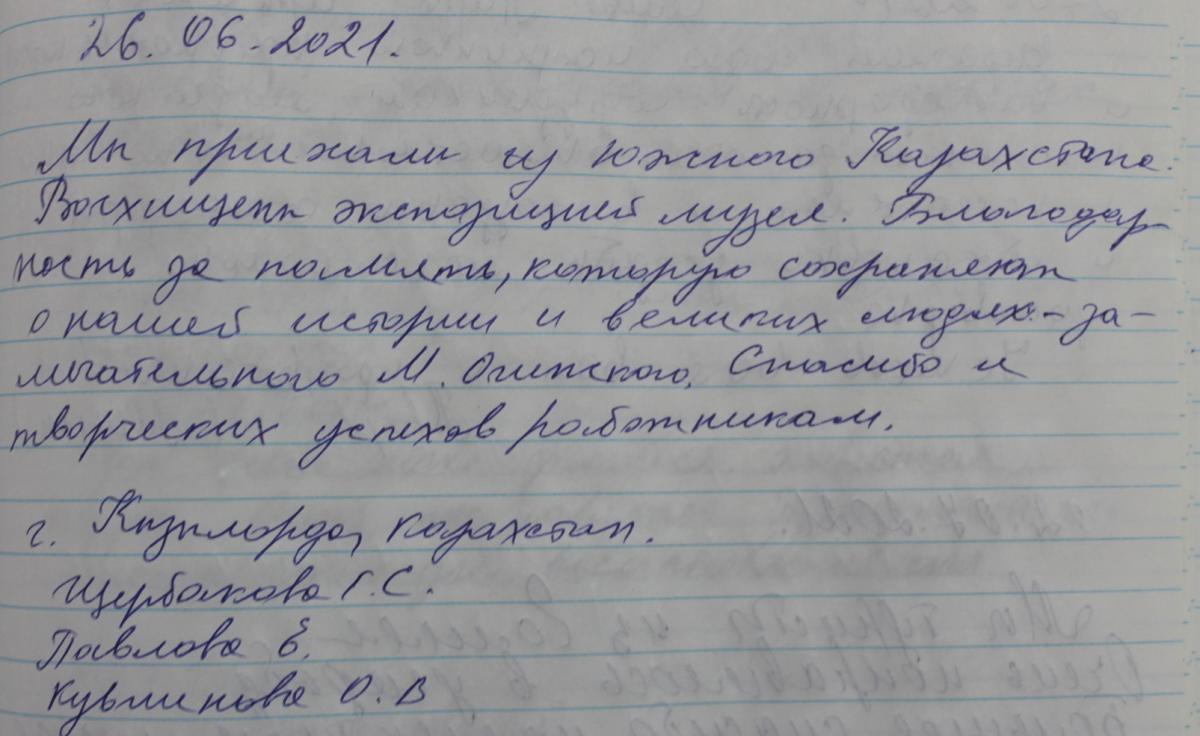 26.06.2021.
Мы приехали из Южного Казахстана.
Восхищены экспозицией музея. Благодар
ность за память, которую сохраняют
о нашей истории и великих людях - за-
мечательного М. Огинского. Спасибо и
творческих успехов работникам.
г. Кызылорда, Казахстан.
Щербакова Г.С.
Павлова Е.
О.В